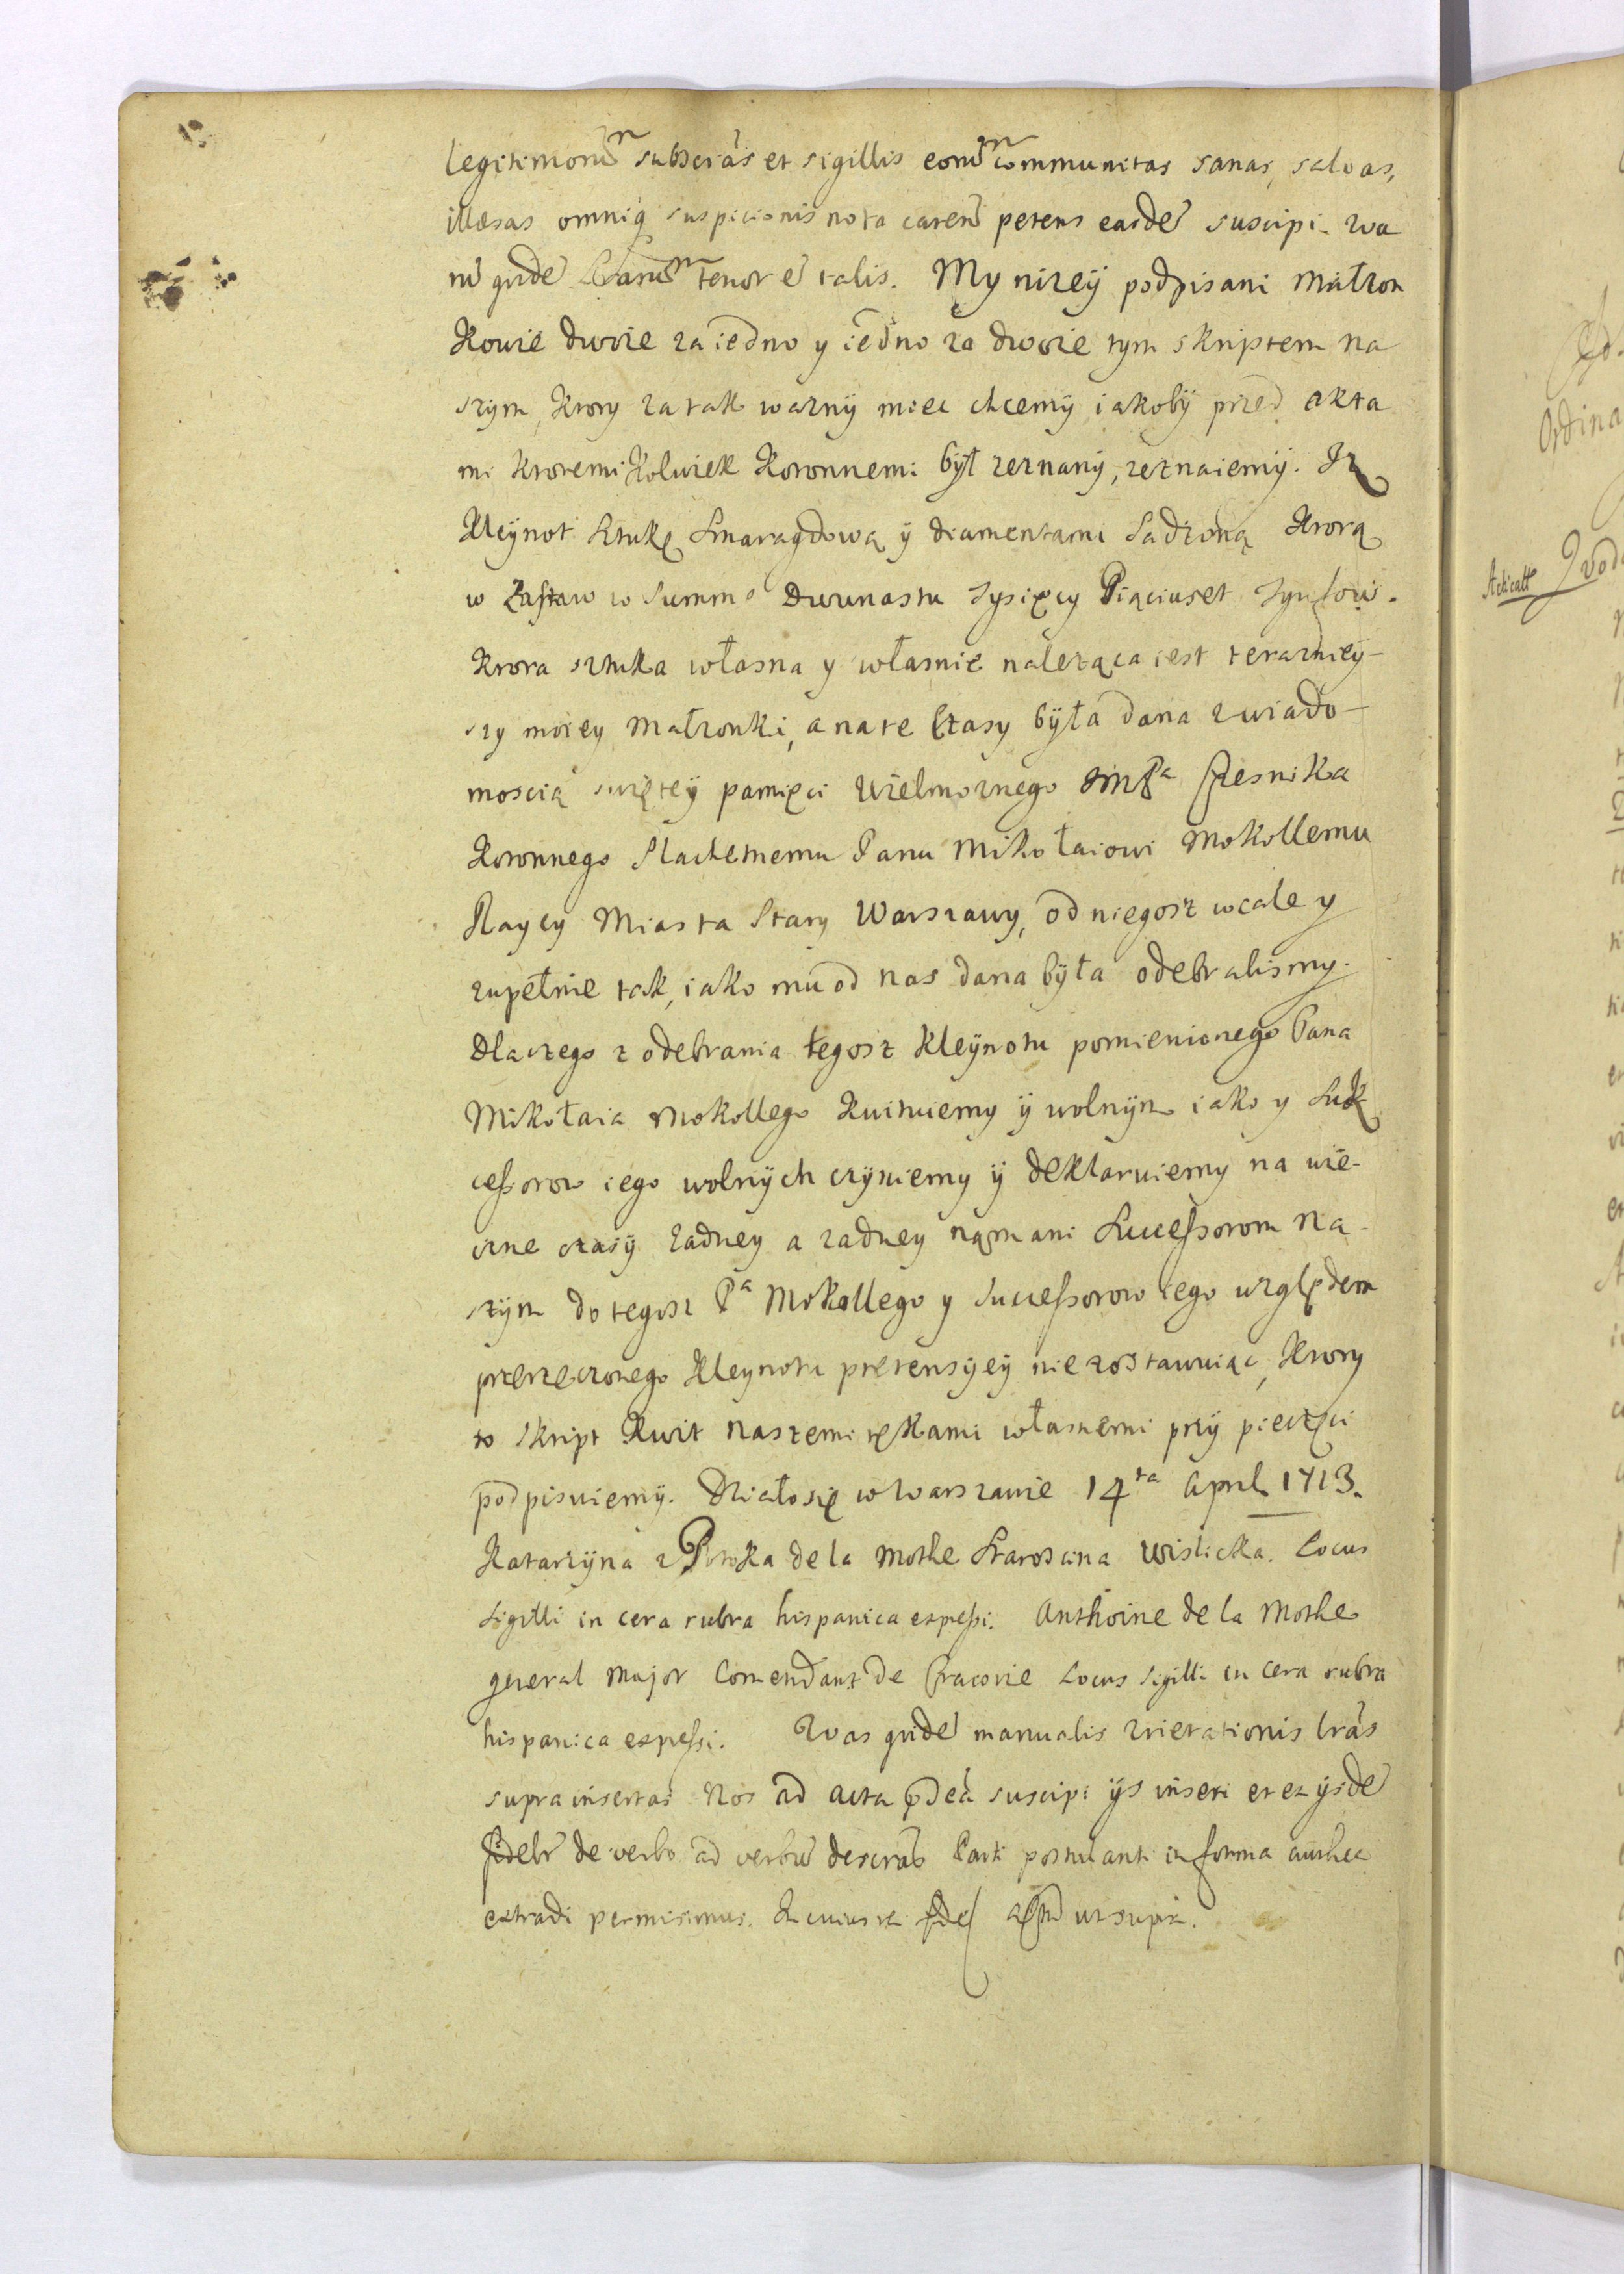 legitimorũ subscr̃às et sigillis eorũ communitas sanas, salvas,
illæsas omniq́ suspicionis nota caren̄ petens easdē suscipi. Qua
rū quidē Lr̃arū tenor ē talis. My niżeÿ podpisani Małzon
Kowie dwoie za iedno y iedno za dwoie tym skriptem na
szym, Ktory za tak waznÿ miec chcemÿ iakobÿ przed akta
mi Ktoremi Kolwiek Koronnemi bÿł zeznanÿ, zeznaiemÿ. Iz
Kleÿnot Sztukę Smaragdową ÿ diamentami Sadzoną Ktorą
w Zastaw w Summe dwunastu Tysięcy Piąciuset Tynfow.
Ktora sztuka własna y własnie naleząca iest terazniey-
szy moiey Małzonki, a na te Czasy bÿła dana z wiado-
moscią swięteÿ pamięci Wielmoznego JmPa Czesnika
Koronnego Slachetnemu Panu Mikołaiowi Mokollemu
Raycy Miasta Stary Warszawy, od niegosz wcale y
zupełnie tak, iako mu od nas dana bÿła odebralismy.
Dlaczego z odebrania tegosz Kleÿnotu pomienionego Pana
Mikołaia Mokollego Kwituiemy ÿ wolnÿm iako y Suk
ceſsorow iego wolnÿch czÿniemy ÿ deklaruiemy na wie-
czne czasÿ zadney a zadney nąm ani Succeſsorom na-
szÿm do tegosz Pa Mokollego y Succeſsorow iego względem
przerzeczonego Kleynotu pretensÿeÿ nie zostawuiąc, Ktory
to Skript Kwit naszemi rękami własnemi przÿ pieczęci
podpisuiemÿ. Działo się w Warszawie 14ta April. 1713.
Katarzÿna z Potoka de la Mothe Starosćina Wislicka. Locus
Sigilli in cera rubra hispanica expeſsi. Anthoine de la Mothe
general Major Comendant de Cracovie Locus Sigilli in Cera rubra
hispanica expeſsi. Quas quidē manualis quietationis lr̃as
supra insertas Nos ad acta suscipi ÿs inseri et ex ÿsdē
fidelr̃ de verbo ad verbū Parti postulanti in forma
extradi permisimus. In cuius rei ut supra.
Ordina